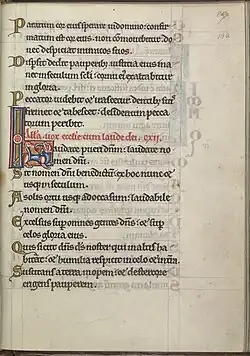 Paratum cor eius sperare in domino: confir
matum est cor eius non commouebitur: do
nec despiciat inimicos suos.
Dispersit dedit pauperib; iusticia eius ma
net in seculum seculi: cornu ei exaltabitur
in gloria.
Peccator uidebit & irascetur dentib; suis
fremet & tabescet: desiderium pecca
torum peribit.
Alla. uox ecclie cum laude dei. cxii.
Laudate pueri dnm: laudate no
men dni.
Sit nomen dni benedictu: ex hoc nunc &
usq; in seculum.
A solis ortu usq; ad occasum: laudabile
nomen dni.
Excelsus sup omnes gentes dns: & sup
celos gloria eius.
Quis sicut dns ds noster qui in altis ha
bitat: & humilia respicit in celo & in tra.
Suscitans a terra inopem: & de stercore
erigens pauperem.